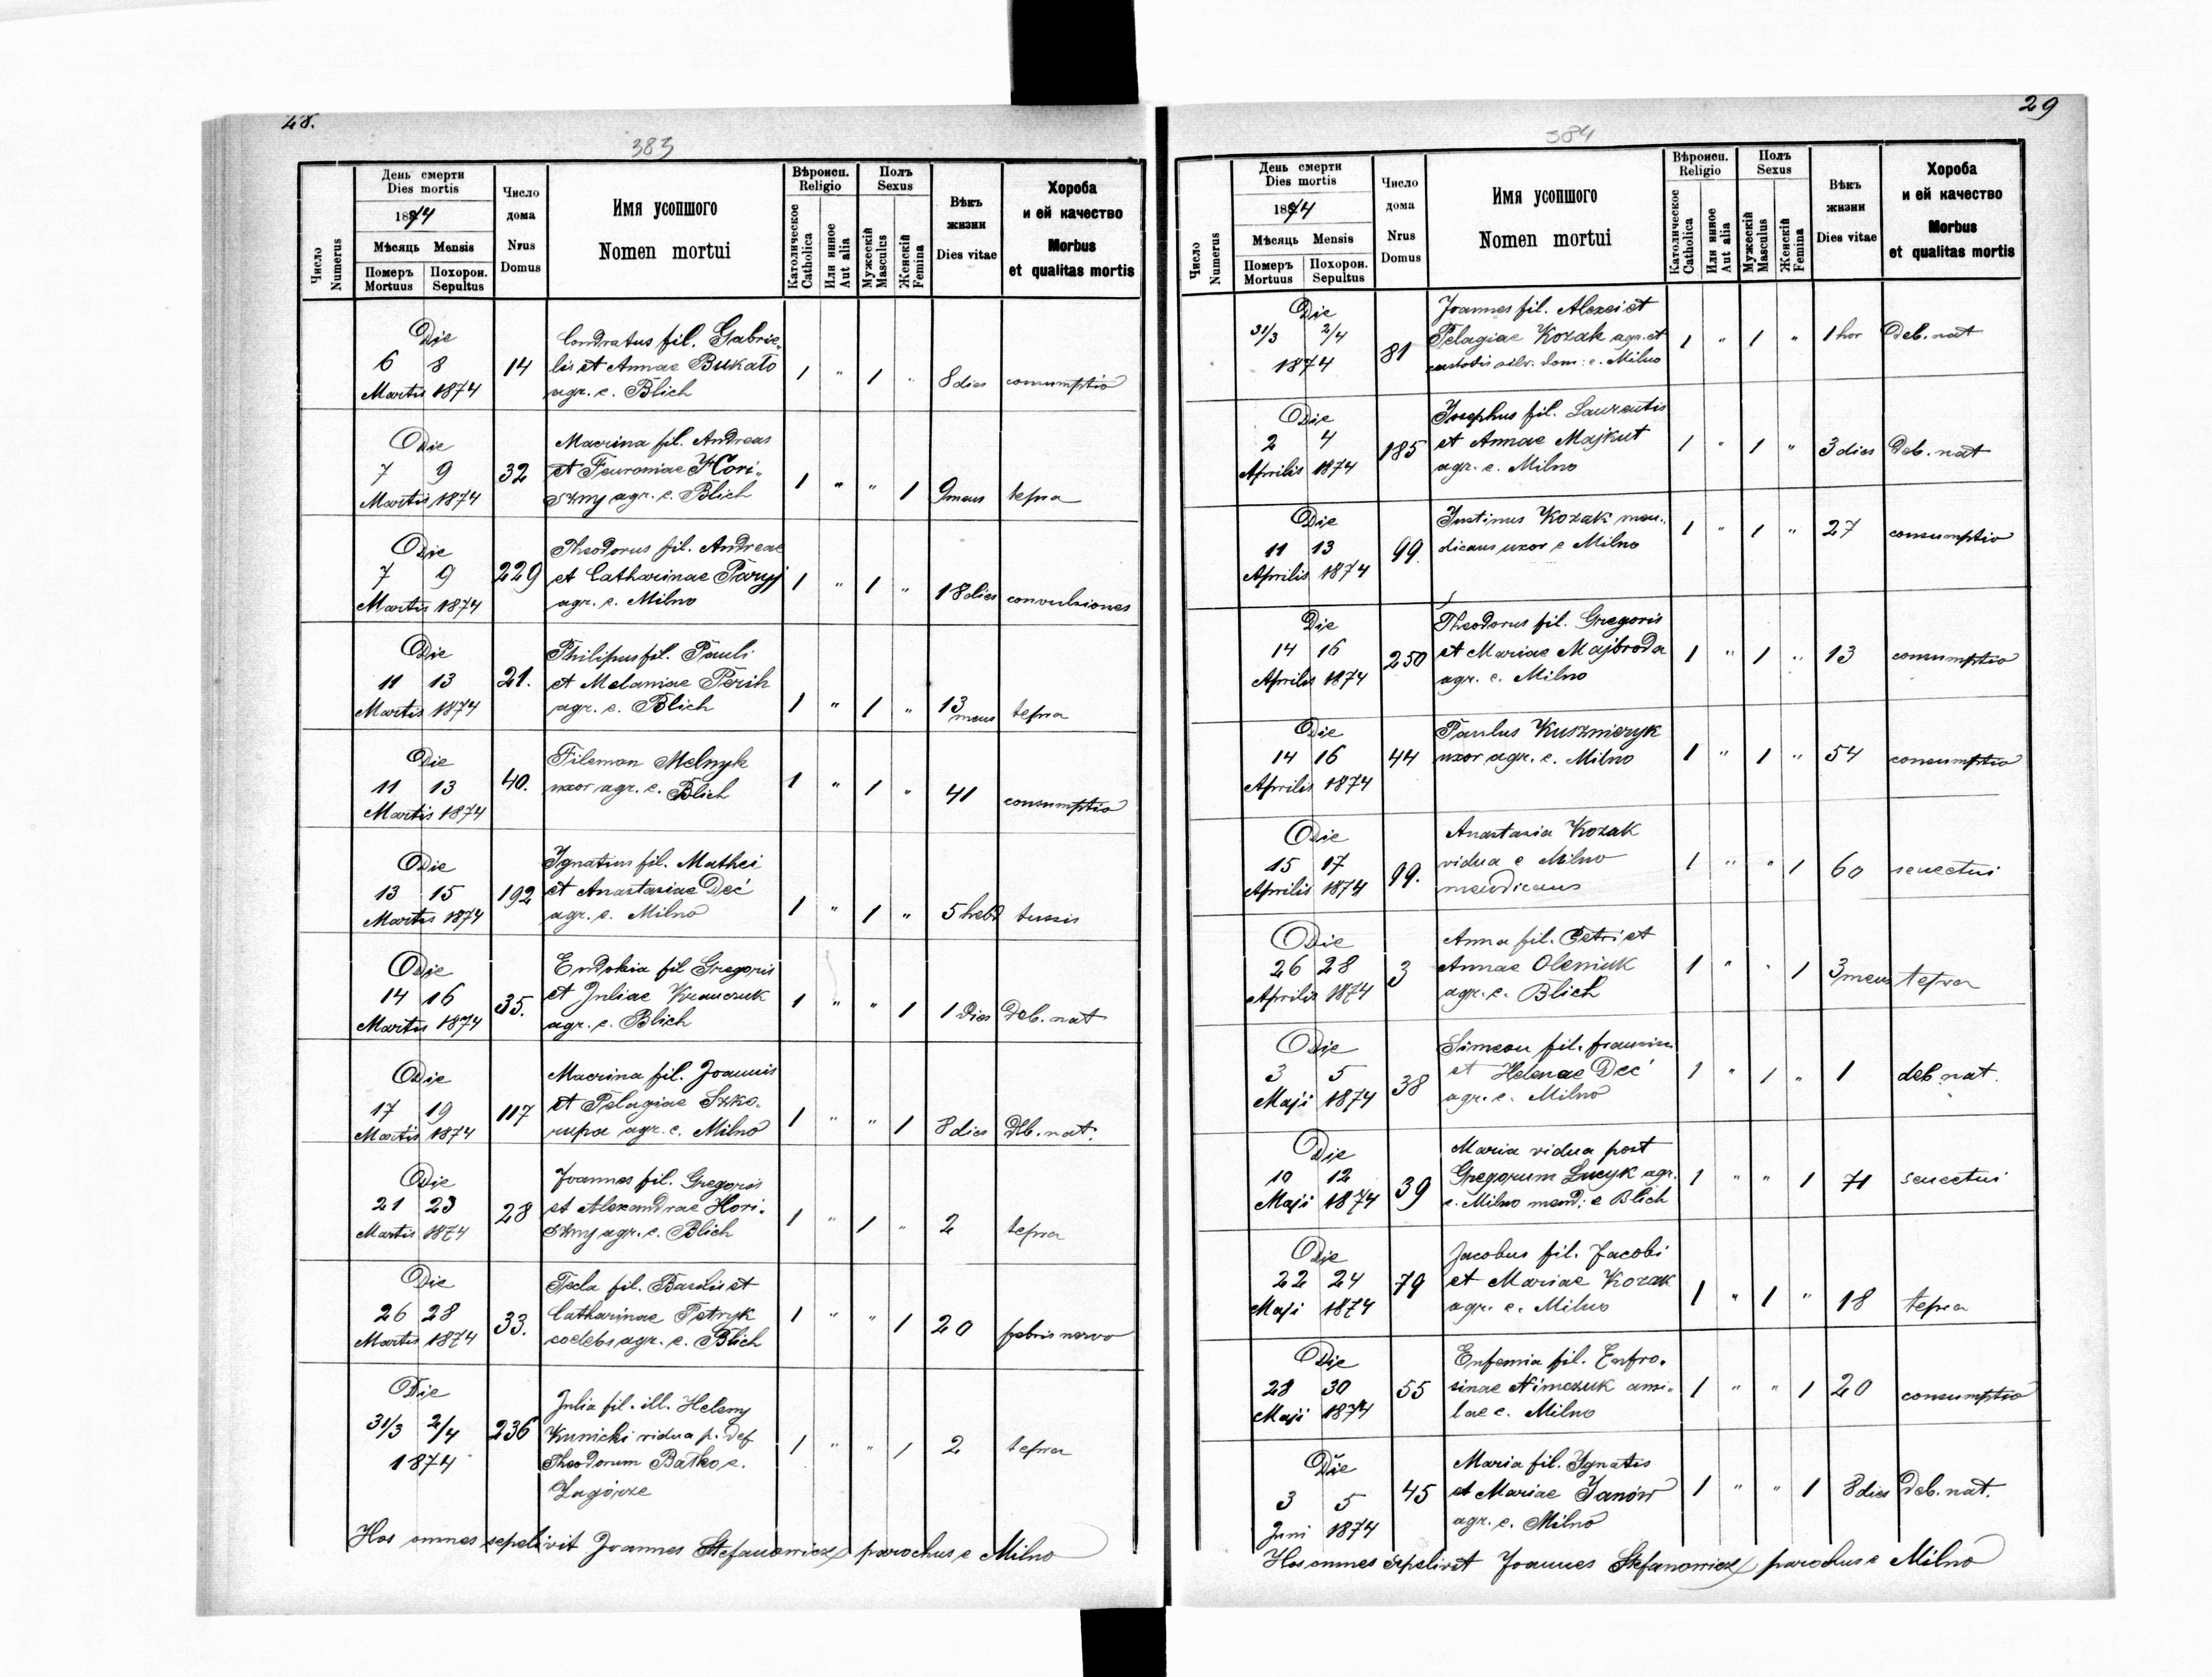 28.
383
Число Numerus
День смерти
Dies mortis
1874
Мѣсяць Mensis
Померъ Mortuus
Похорон. Sepultus
Число дома
Nrus Domus
Имя усопшого
Nomen mortui
Вѣроисп.
Religio
Католическое Catholica
Или инное Aut alia
Полъ
Sexus
Мужескій Masculus
Женскій Femina
Вѣкъ жизни
Dies vitae
Хороба
и ей качество
Morbus
et qualitas mortis
Die
6 8
Martis 1874
14
Condratus fil. Gabrie„
lis et Annae Bukato
agr. e. Blich
1 " 1 "
8 dies
consumptio
Die
7 9
Martis 1874
32
Macrina fil. Andreas
et Feuroniae Hori„
szny agr. e. Blich
1 " " 1
9 mens
tepra
Die
7 9
Martis 1874
229
Theodorus fil. Andreae
et Catharinae Paryj
agr. e. Milno
1 " 1 "
18 dies
convulsiones
Die
11 13
Martis 1874
21.
Philipus fil. Pauli
et Melaniae Perih
agr. e. Blich
1 " 1 "
13 mens
tepra
Die
11 13
Martis 1874
40.
Filemon Melnyk
uxor agr. e. Blich
1 " 1 "
41
consumptio
Die
13 15
Martis 1874
192
Ignatius fil. Mathei
et Anastasiae Deć
agr. e. Milno
1 " 1 "
5 hebd
tussis
Die
14 16
Martis 1874
35.
Eudokia fil Gregoris
et Juliae Krawczuk
agr. e. Blich
1 " " 1
1 Dies
Deb. nat
Die
17 19
Martis 1874
117
Macrina fil. Joannis
et Pelagiae Szko„
rupa agr. e. Milno
1 " " 1
8 dies
Deb. nat.
Die
21 23
Martis 1874
28
Joannes fil. Gregoris
et Alexandrae Hori„
szny agr. e. Blich
1 " 1 "
2
tepra
Die
26 28
Martis 1874
33.
Tecla fil. Basilis et
Catharinae Petryk
coelebs agr. e. Blich
1 " " 1
20
febris nervo
Die
31/3 2/4
1874
236
Julia fil. ill. Heleny
Kunicki vidua p. def
Theodorum Batko e.
Zagórze
1 " " 1
2
tepra
Hos omnes sepelivit Joannes Stefanowicz parochus e Milno
29
384
Число Numerus
День смерти
Dies mortis
1874
Мѣсяць Mensis
Померъ Mortuus
Похорон. Sepultus
Число дома
Nrus Domus
Имя усопшого
Nomen mortui
Вѣроисп.
Religio
Католическое Catholica
Или инное Aut alia
Полъ
Sexus
Мужескій Masculus
Женскій Femina
Вѣкъ жизни
Dies vitae
Хороба
и ей качество
Morbus
et qualitas mortis
Die
31/3 2/4
1874
81
Joannes fil. Alexei et
Pelagiae Kozak agr. et
custodis silv. dom: e. Milno
1 " 1 "
1 hor
Deb. nat
Die
2 4
Aprilis 1874
185
Josephus fil. Laurentis
et Annae Majkut
agr. e. Milno
1 " 1 "
3 dies
Deb. nat
Die
11 13
Aprilis 1874
99.
Justinus Kozak men„
dicans uxor e Milno
1 " 1 "
27
consumptio
Die
14 16
Aprilis 1874
250
Theodorus fil. Gregoris
et Mariae Majbroda
agr. e. Milno
1 " 1 "
13
consumptio
Die
14 16
Aprilis 1874
44
Paulus Kuszmeryk
uxor agr. e. Milno
1 " 1 "
54
consumptio
Die
15 17
Aprilis 1874
99.
Anastasia Kozak
vidua e Milno
mendicans
1 " " 1
60
senectui
Die
26 28
Aprilis 1874
3
Anna fil. Petri et
Annae Oleniuk
agr. e. Blich
1 " " 1
3 mens
tepra
Die
3 5
Maji 1874
38
Simeon fil.
et Helenae Deć
agr. e. Milno
1 " 1 "
1
deb. nat.
Die
10 12
Maji 1874
39
Maria vidua post
Gregorum Lucyk agr.
e. Milno mend: e Blich
1 " " 1
71
senectui
Die
22 24
Maji 1874
79
Jacobus fil. Jacobi
et Mariae Kozak
agr. e. Milno
1 " 1 "
18
tepra
Die
28 30
Maji 1874
55
Eufemia fil. Eufro„
sinae Nimczuk
lae e. Milno
1 " " 1
20
consumptio
Die
3 5
Juni 1874
45
Maria fil. Ignatis
et Mariae Janów
agr. e. Milno
1 " " 1
8 dies
Deb. nat.
Hos omnes sepelivit Joannes Stefanowicz parochus e Milno